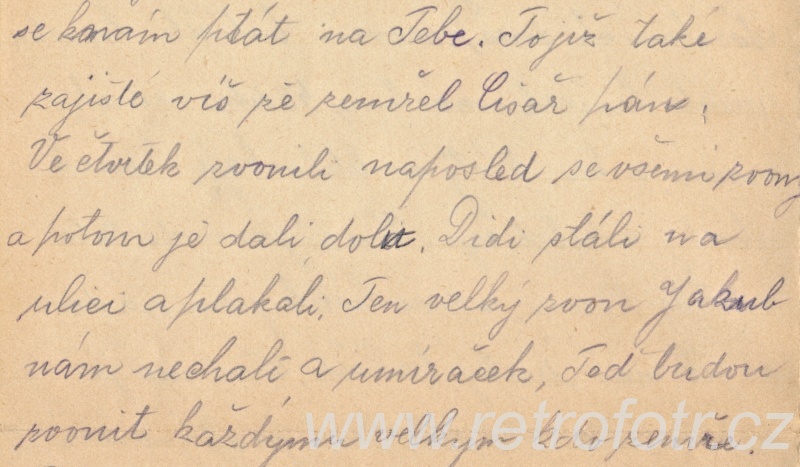 se k nám ptát na Tebe. To již také
zajisté víš že zemřel Císař pán.
Ve čtvrtek zvonili naposled se všemi zvony
a potom je dali dolu. Didi stáli na
ulici a plakali. Ten velký zvon Jakub
nám nechali a umíráček, Teď budou
zvonit každýmu velkym kdo zemře.
www.retrofotr.cz